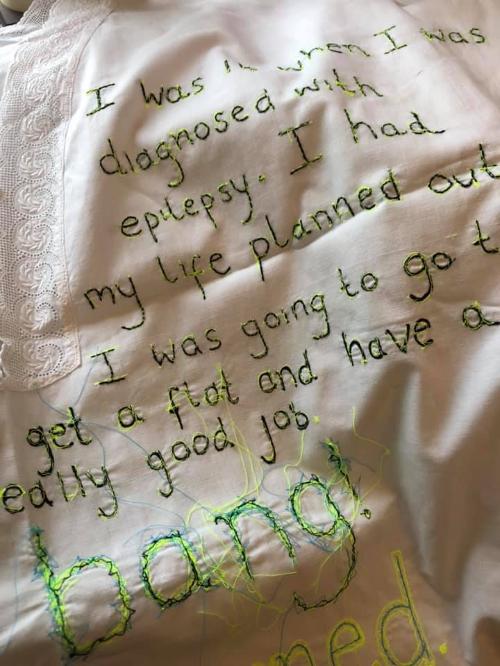 I was when I was
diagnosed with
epilepsy. I had
my life planned out
I was going to go t
get a flat and have a
eally good job
bang.
ned.